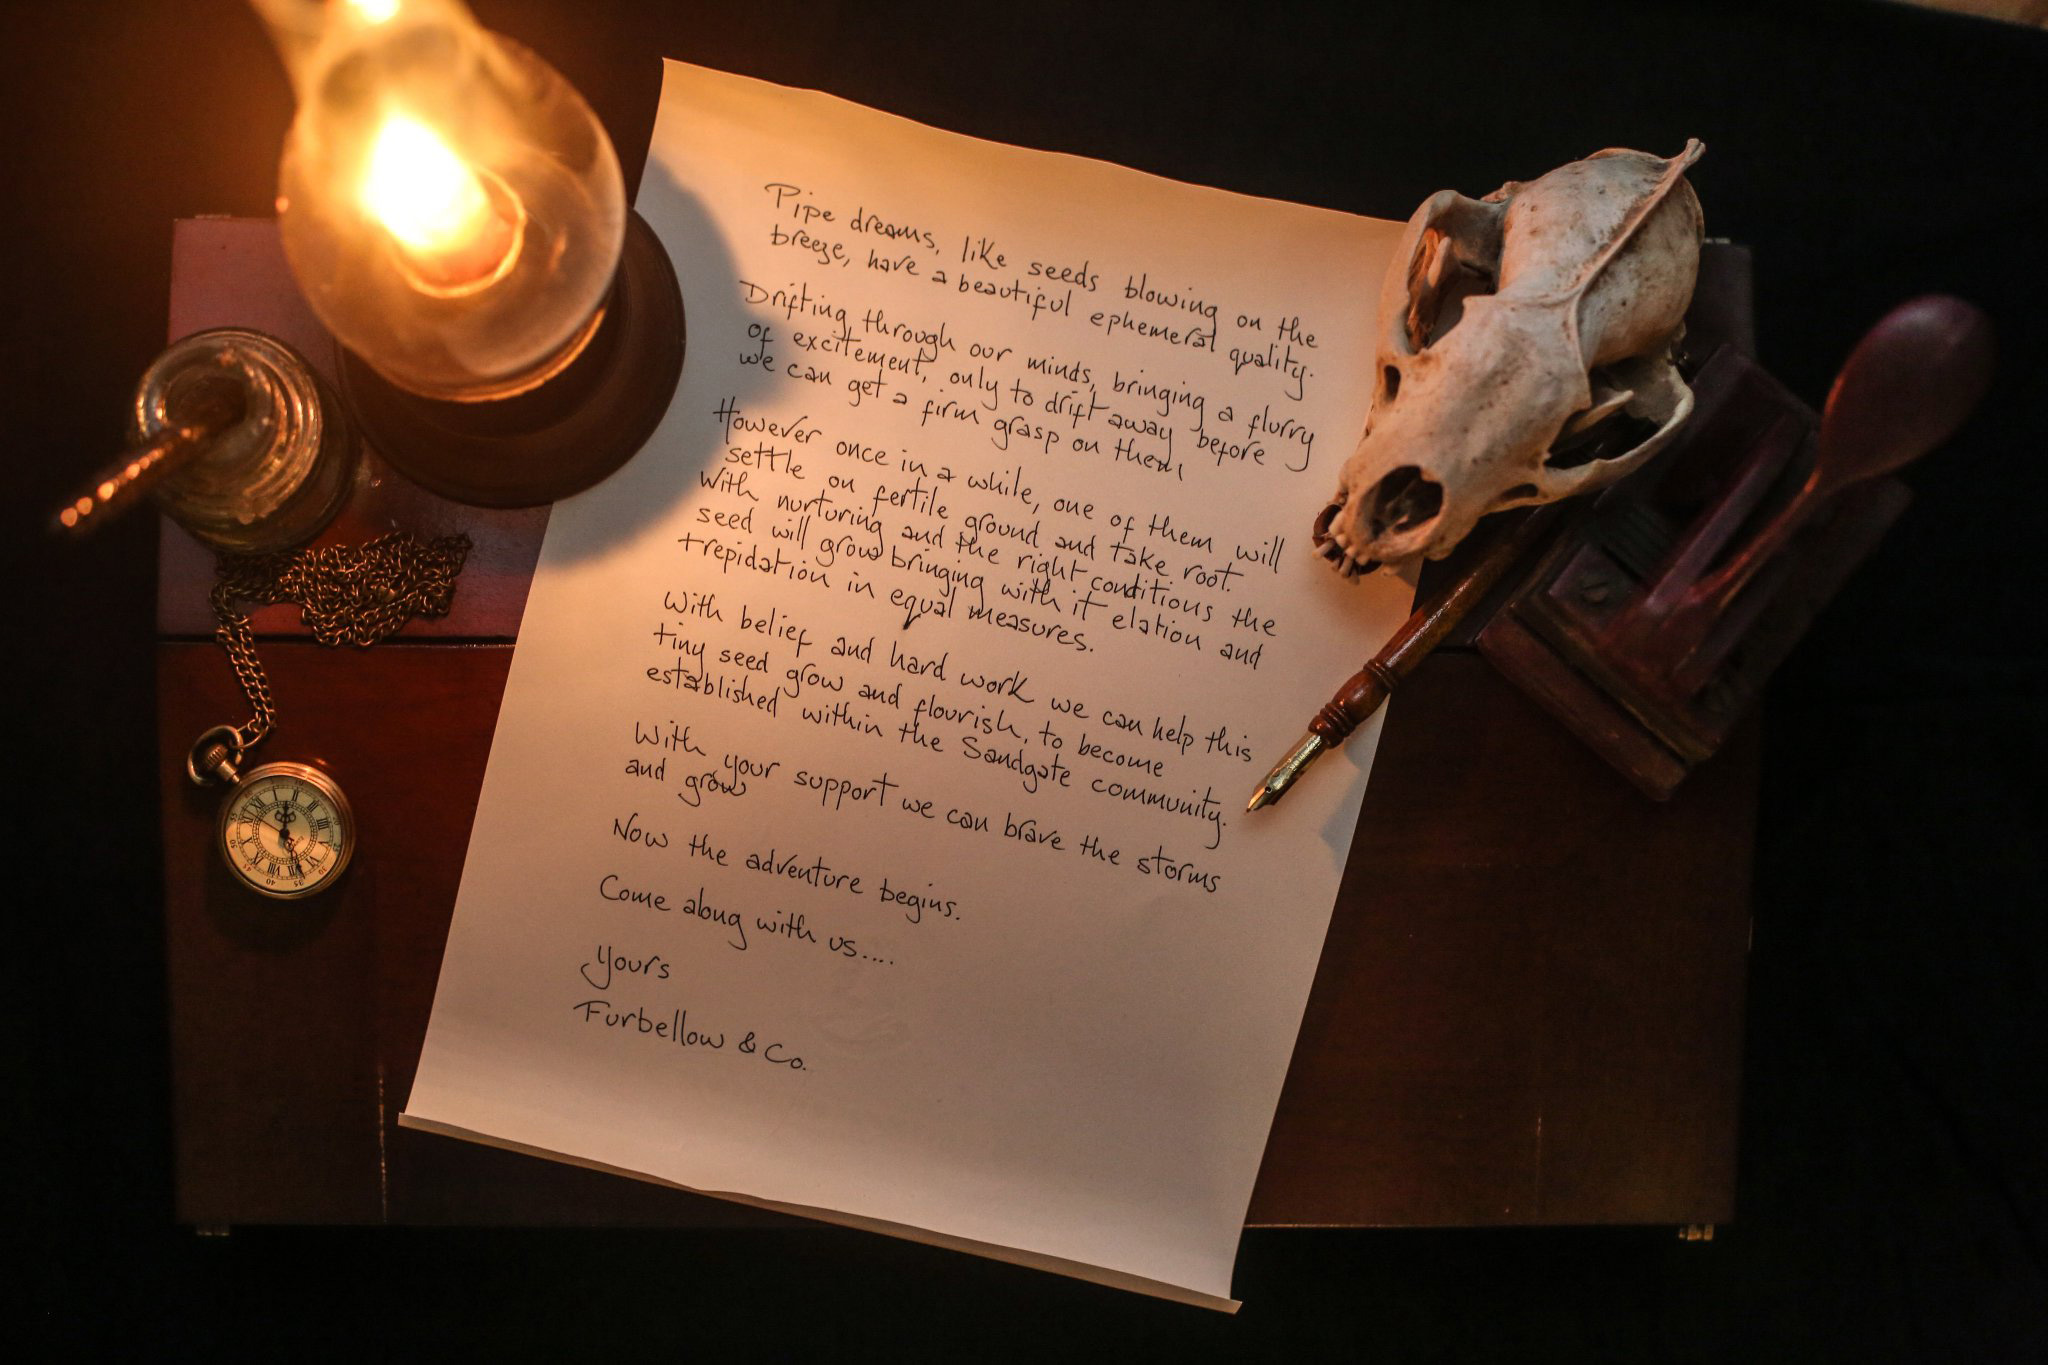 Pipe dreams, like seeds blowing on the
breeze, have a beautiful ephemeral quality.
Drifting through our minds, bringing a flurry
of excitement, only to drift away before
we can get a firm grasp on them,
However once in a while, one of them will
settle on fertile ground and take root.
With nurturing and the right conditions the
seed will grow bringing with it elation and
trepidation in equal measures.
With belief and hard work we can help this
tiny seed grow and flourish, to become
established within the Sandgate community.
With your support we can brave the storms
and grow
Now the adventure begins.
Come along with us....
Yours
Furbellow & Co.